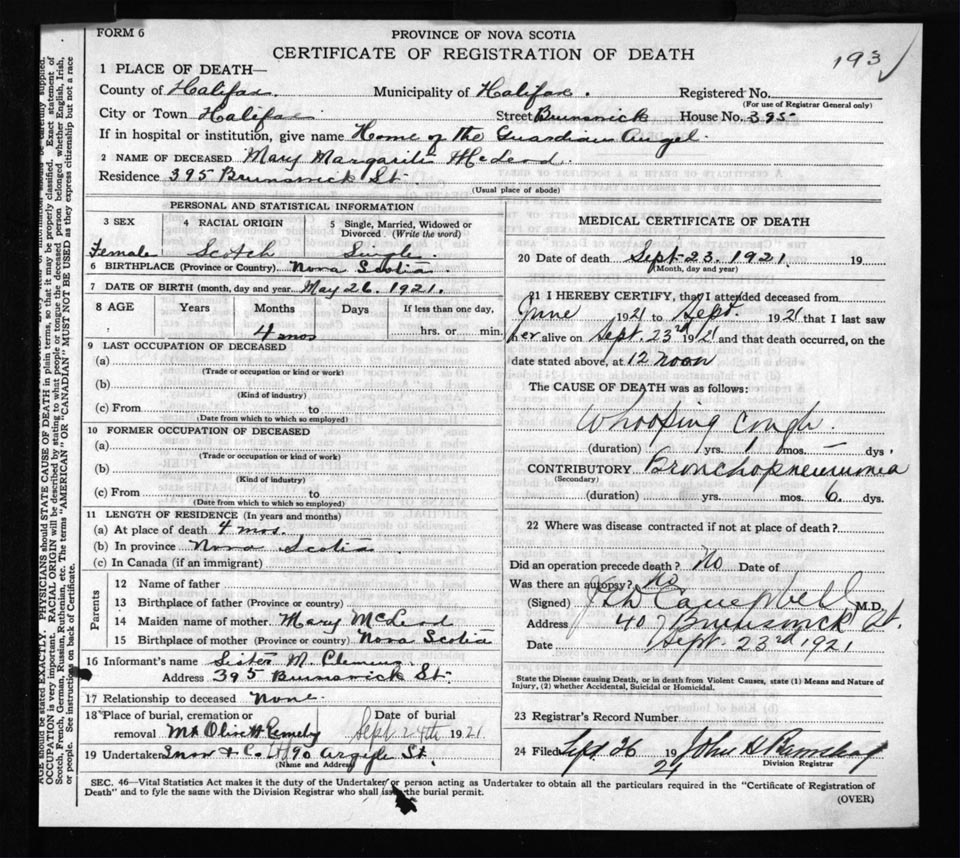 FORM 6
PROVINCE OF NOVA SCOTIA
CERTIFICATE OF REGISTRATION OF DEATH
193
1 PLACE OF DEATH—
County of Halifax. Municipality of Halifax. Registered No.
(For use of Registrar General only)
City or Town Halifax Street Brunswick House No. 395
If in hospital or institution, give name Home of the Guardian Angel.
2 NAME OF DECEASED Mary Margarite McLeod.
Residence 395 Brunswick St.
(Usual place of abode)
PERSONAL AND STATISTICAL INFORMATION
3 SEX 4 RACIAL ORIGIN 5 Single, Married, Widowed or Divorced. (Write the word)
Female Scotch Single.
6 BIRTHPLACE (Province or Country) Nova Scotia
7 DATE OF BIRTH (month, day and year May 26. 1921.
8 AGE Years Months Days If less than one day,
4 mos hrs. or min.
9 LAST OCCUPATION OF DECEASED
(a)
(Trade or occupation or kind or work)
(b)
(Kind of industry)
(c) From to
(Date from which to which so employed)
10 FORMER OCCUPATION OF DECEASED
(a)
(Trade or occupation or kind of work)
(b)
(Kind of industry)
(c) From to
(Date from which to which so employed)
11 LENGTH OF RESIDENCE (In years and months)
(a) At place of death 4 mos.
(b) In province Nova Scotia
(c) In Canada (if an immigrant)
Parents
12 Name of father
13 Birthplace of father (Province or country)
14 Maiden name of mother Mary McLeod
15 Birthplace of mother (Province or country) Nova Scotia
16 Informant's name Sister M.
Address 395 Brunswick St.
17 Relationship to deceased None.
18 Place of burial, cremation or removal Mt Olivet Cemetery
Date of burial
Sept 24th 1921
19 Undertaker Snow & Co Ltd 90 Argyle St.
(Name and Address)
MEDICAL CERTIFICATE OF DEATH
20 Date of death Sept 23. 1921. 19
(Month, day and year)
21 I HEREBY CERTIFY, that I attended deceased from
June 1921 to Sept. 1921 that I last saw
her alive on Sept. 23rd 1921 and that death occurred, on the
date stated above, at 12 noon
The CAUSE OF DEATH was as follows:
Whooping Cough.
(duration) yrs. 1 mos. – dys.
CONTRIBUTORY Bronchopneumonia
(Secondary)
(duration) yrs. mos. 6. dys.
22 Where was disease contracted if not at place of death?
Did an operation precede death? No Date of
Was there an autopsy? No
(Signed) Campbell M.D.
Address 407 Brunswick St.
Date Sept. 23rd 1921
State the Disease causing Death, or in death from Violent Causes, state (1) Means and Nature of
Injury, (2) whether Accidental, Suicidal or Homicidal.
23 Registrar's Record Number
24 Filed Sept 26 1921 John H
Division Registrar
SEC. 46—Vital Statistics Act makes it the duty of the Undertaker or person acting as Undertaker to obtain all the particulars required in the "Certificate of Registration of
Death" and to fyle the same with the Division Registrar who shall issue the burial permit.
(OVER)
AGE should be stated EXACTLY. PHYSICIANS should STATE CAUSE OF DEATH in plain terms, so that it may be properly classified. Exact statement of
OCCUPATION is very important. RACIAL ORIGIN will be described by stating to what people or tongue the deceased person belonged whether English, Irish,
Scotch, French, German, Russian, Ruthenian, etc. The terms "AMERICAN" OR "CANADIAN" MUST NOT BE USED as they express citizenship but not a race
or people. See instructions on back of Certificate.